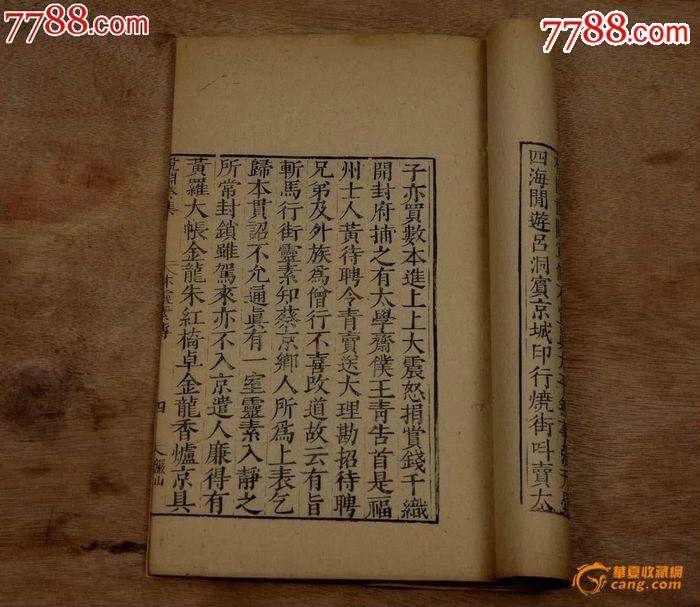 7788.com
7788.com
四海閒遊呂洞賓京城印行燒街叫賣太
子亦買數本進上上大震怒捐賞錢千織
開封府捕之有太學齋僕王靑告首是福
州士人黃待聘令青賣送大理勘招待聘
兄弟及外族爲僧行不喜改道故云有旨
斬馬行街靈素知蔡京鄉人所爲上表乞
歸本貫詔不允通眞有一室靈素入靜之
所常封鎖雖駕來亦不入京遣人廉得有
黃羅大帳金龍朱紅椅卓金龍香爐京具
四
華夏收藏網
cang.com